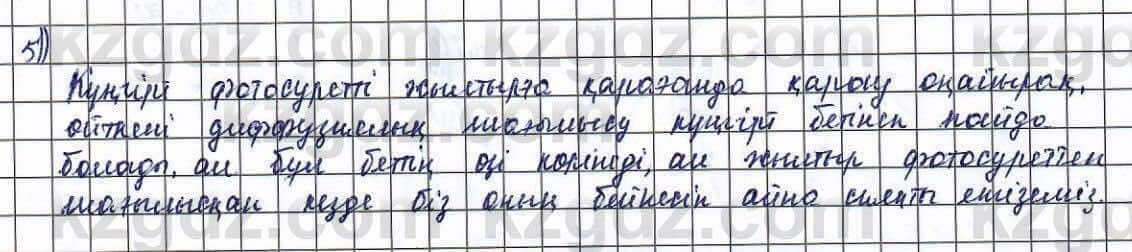 5)
Күңгірт фотосуретті жылтырға қарағанда қарау оңайырақ,
өйткені диффузиялық шағылысу күңгірт бетінен пайда
болады, ал бұл беттің өзі көрінеді, ал жылтыр фотосуреттен
шағылысқан кезде біз оның бейнесін айна сияқты енгіземіз.
kzgdz.com kzgdz.com kzgdz.com